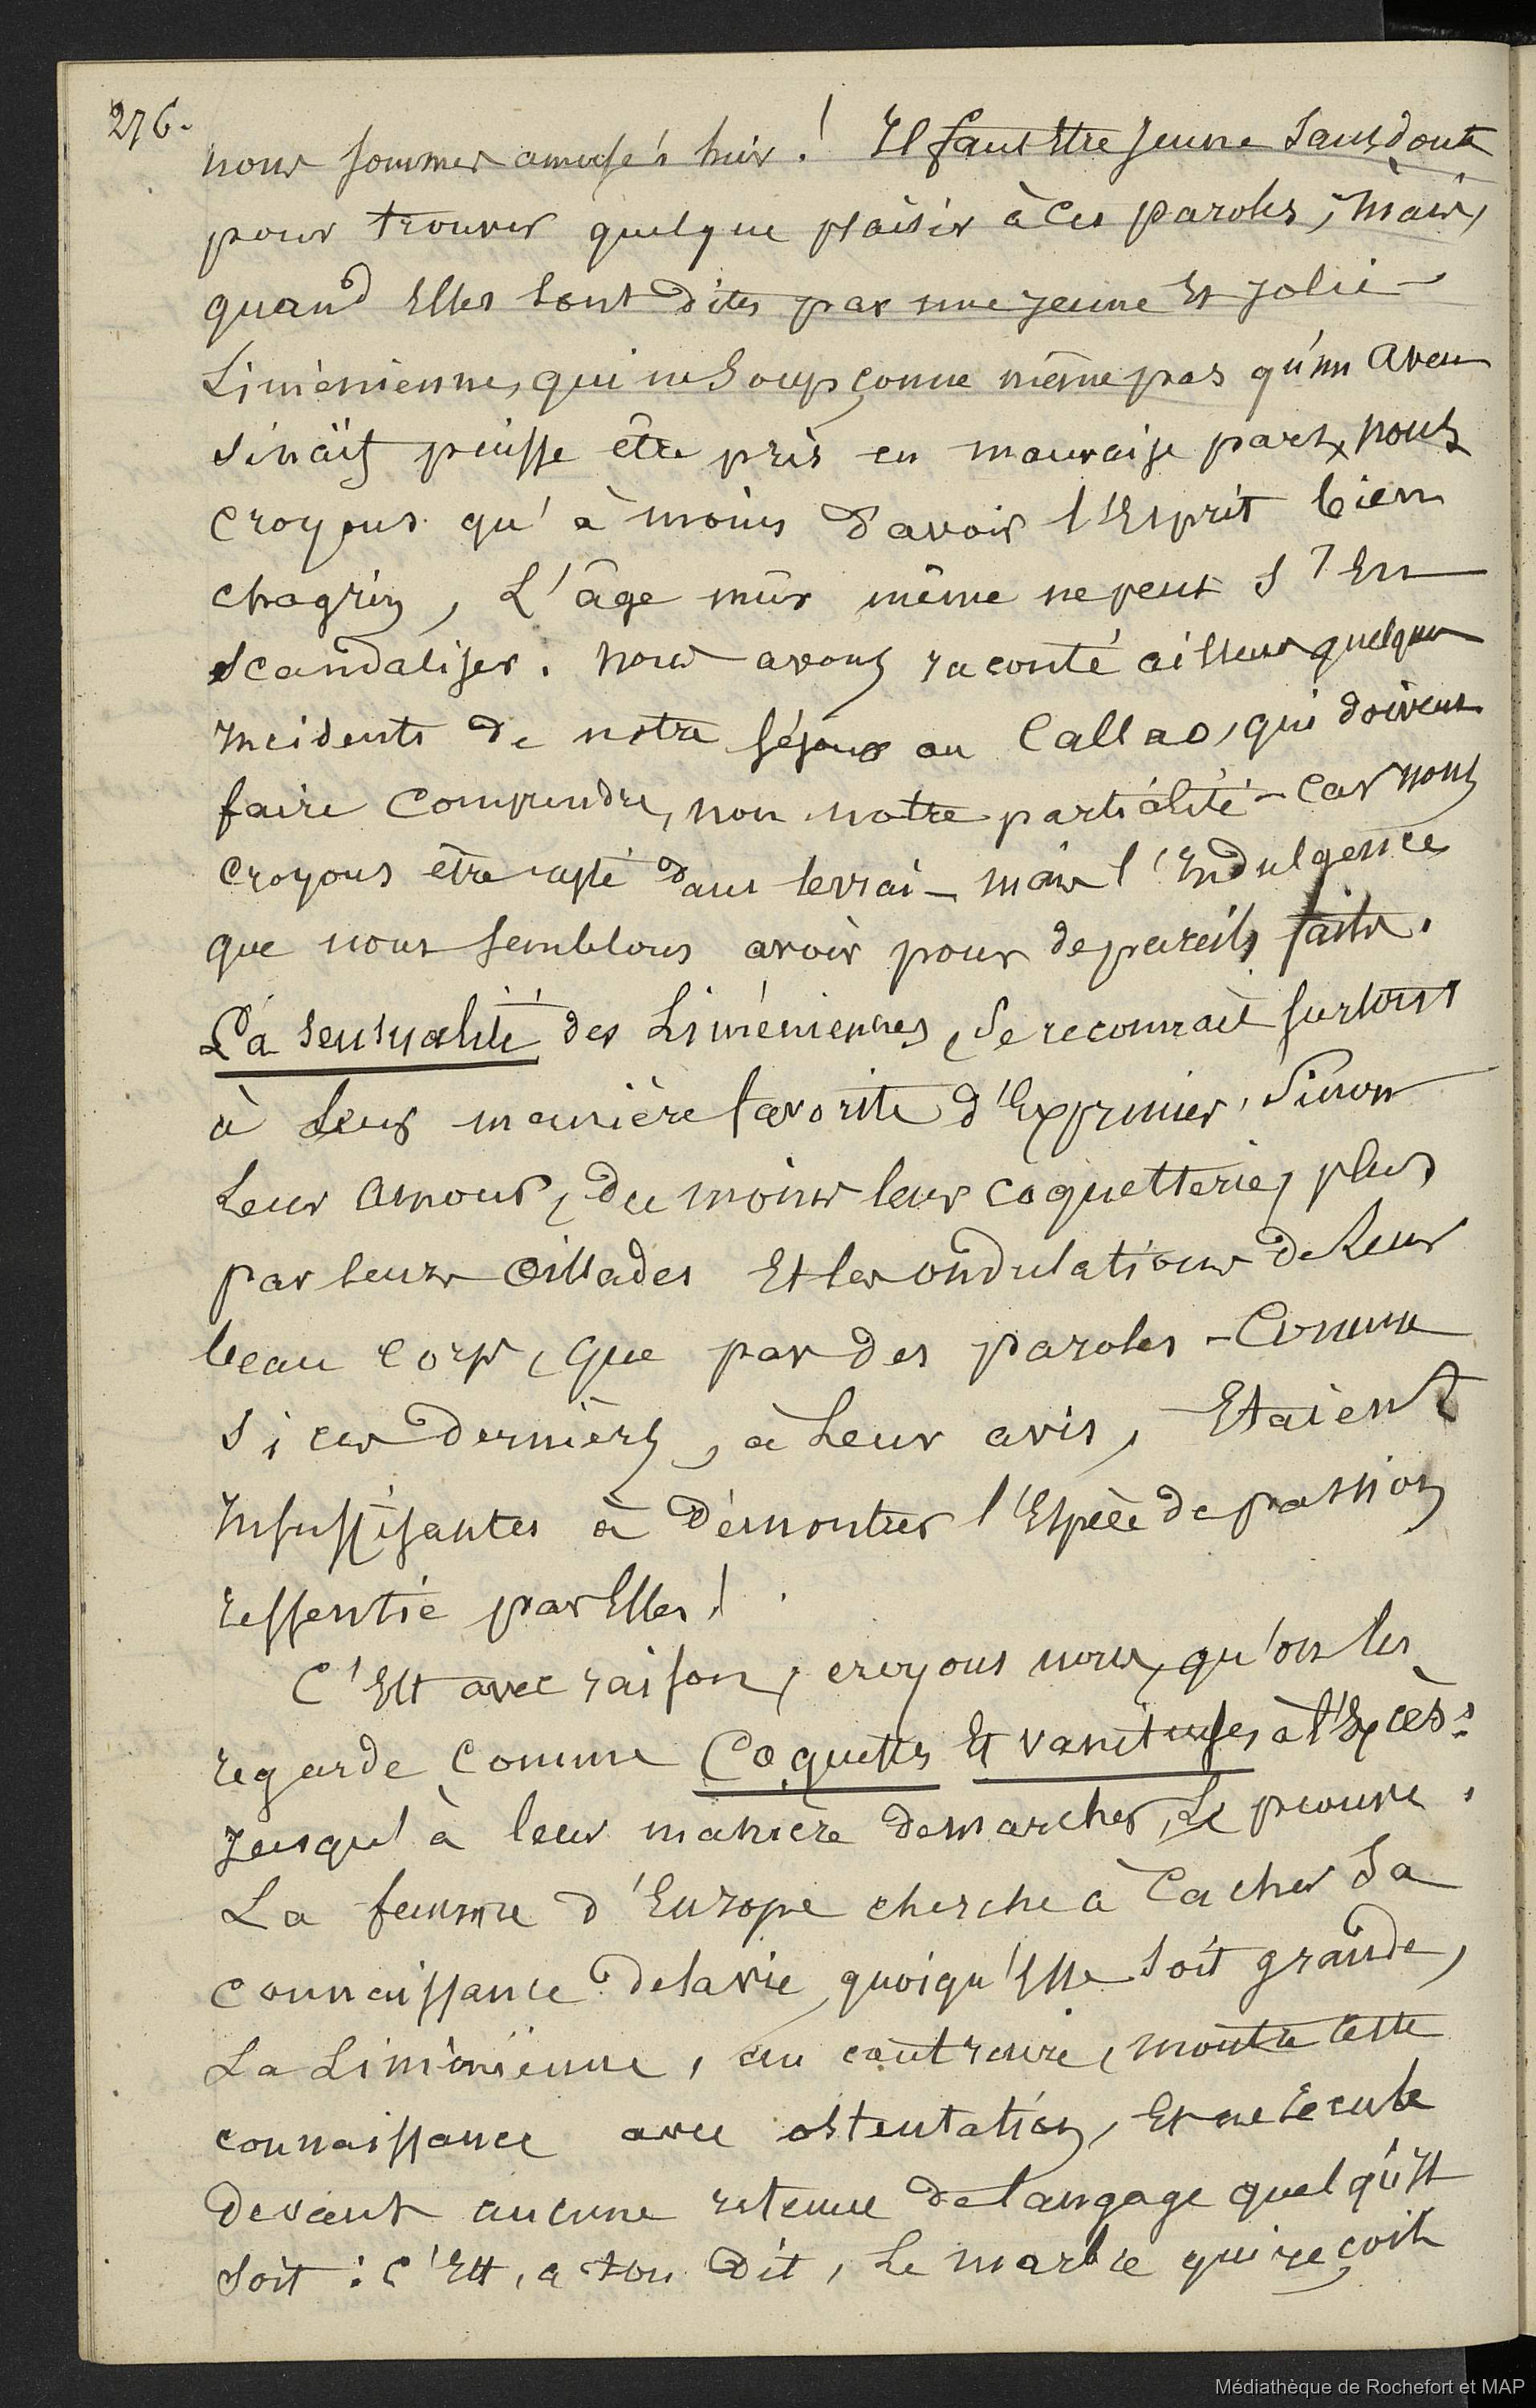 276.
nous sommes amusés hier ! Il faut être jeune sans doute
pour trouver quelque plaisir à ces paroles ; mais,
quand Elles sont dites par une jeune Et jolie
Liménienne, qui ne soupçonne même pas qu'un aveu
si naïf puisse être pris en mauvaise part, nous
croyons qu'à moins d'avoir l'Esprit bien
chagrin, L'âge mûr même ne peut s'En
scandaliser. Nous avons raconté ailleurs quelques
Incidents de notre séjour au Callao, qui doivent
faire Comprendre, non notre partialité – Car nous
croyons être resté dans le vrai – mais l'Indulgence
que nous semblons avoir pour de pareils faits.
La sensualité des Liméniennes, se reconnait surtout
à leur manière favorite d'Exprimer, Sinon
Leur Amour, du moins leur coquetterie, plus
par leurs Œillades Et les ondulations de Leur
beau corps, que par des paroles – Comme
si ces dernières, à Leur avis, Etaient
Insuffisantes à démontrer l'Espèce de passion
ressentie par Elles !
C'Est avec raison, croyons nous, qu'on les
regarde Comme Coquettes Et vaniteuses à l'Excès :
Jusqu'à leur manière de marcher, Le prouve.
La femme d'Europe cherche à Cacher Sa
connaissance de la vie, quoiqu'Elle soit grande,
La Liménienne, au contraire, montre Cette
connaissance avec ostentation, Et ne recule
devant aucune retenue de langage quel qu'Il
soit : c'Est, a t'on dit, Le marbre qui reçoit
Médiathèque de Rochefort et MAP